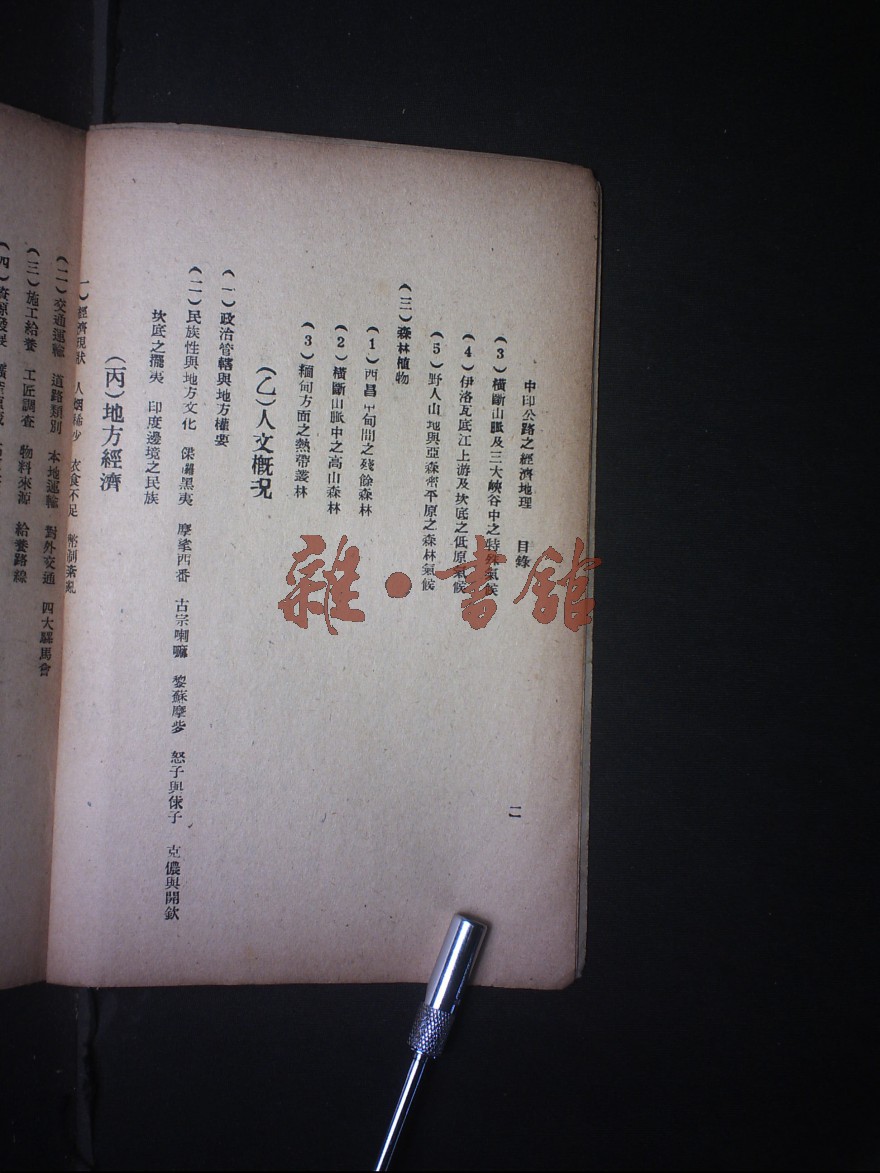 中印公路之經濟地理 目錄
二
(3)橫斷山脈及三大峽谷中之特殊氣候
(4)伊洛瓦底江上游及坎底之低原氣候
(5)野人山地與亞森密平原之森林氣候
(三)森林植物
(1)西昌中甸間之殘餘森林
(2)橫斷山脈中之高山森林
(3)緬甸方面之熱帶叢林
(乙)人文概況
(一)政治管轄與地方權要
(二)民族性與地方文化 倮羅黑夷 摩挲西番 古宗喇嘛 黎蘇摩 怒子與俅子 克儂與開欽
坎底之擺夷 印度邊境之民族
(丙)地方經濟
一)經濟現狀 人烟稀少 衣食不足 幣制紊亂
(二)交通運輸 道路類別 本地運輸 對外交通 四大騾馬會
(三)施工給養 工匠調查 物料來源 給養路線
(四)資源發展
雜·書館